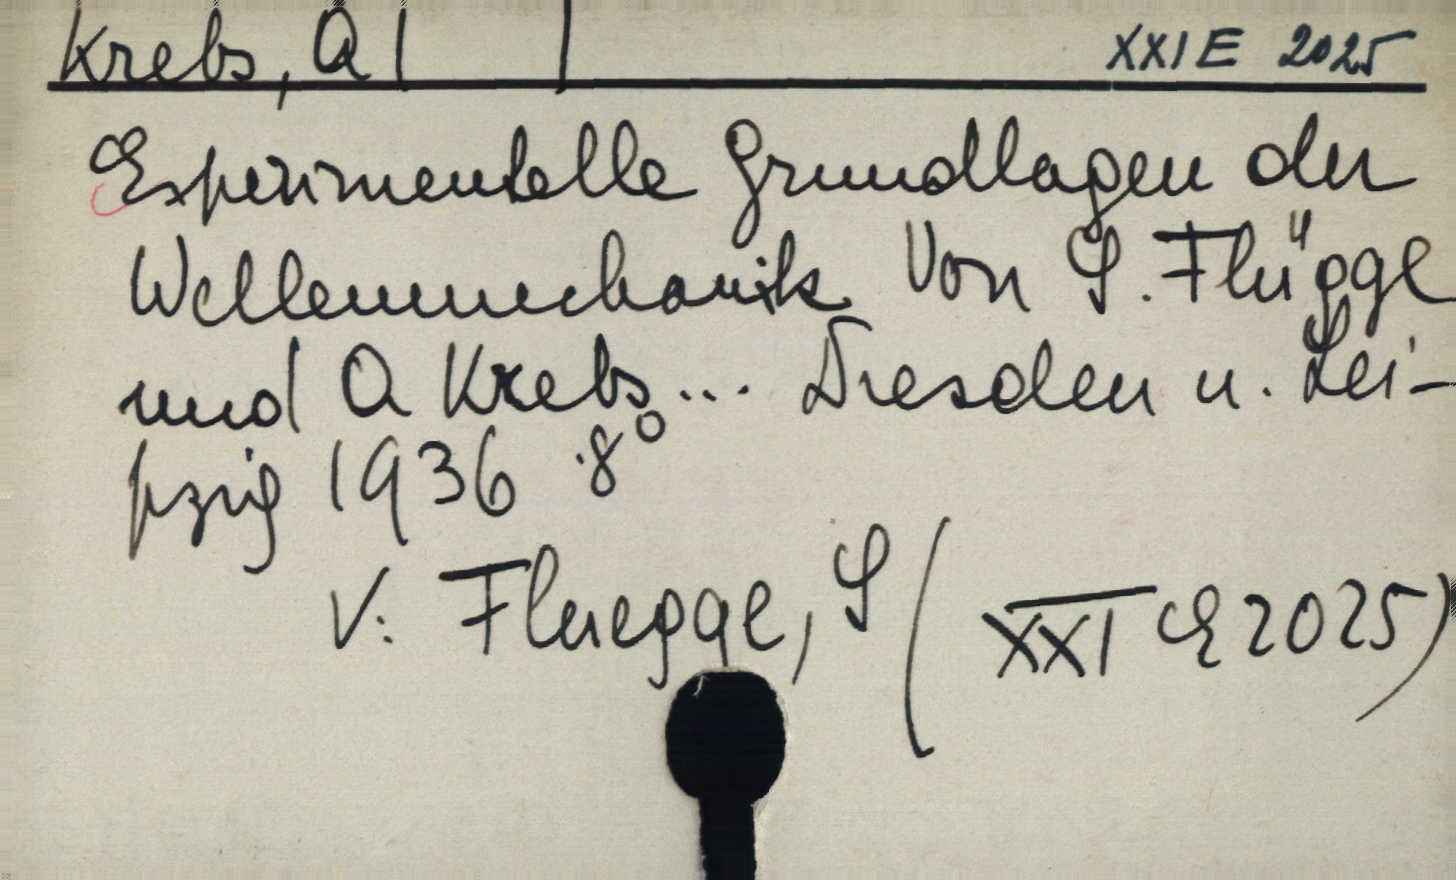 Krebs, A | | XXI E 2025
Experimentelle Grundlagen der
Wellenmechanik Von S. Flügge
und A Krebs... Dresden u. Lei-
pzig 1936 .8°
V: Fluegge, S (XXI E 2025)